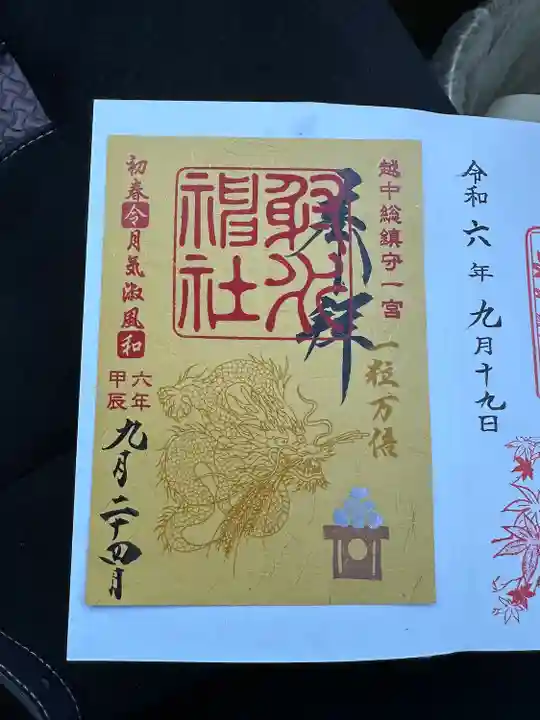 令和六年九月十九日
越中総鎮守一宮
一粒万倍
奉拝
射水
神社
初春令月気淑風和
六年
甲辰
九月二十四日